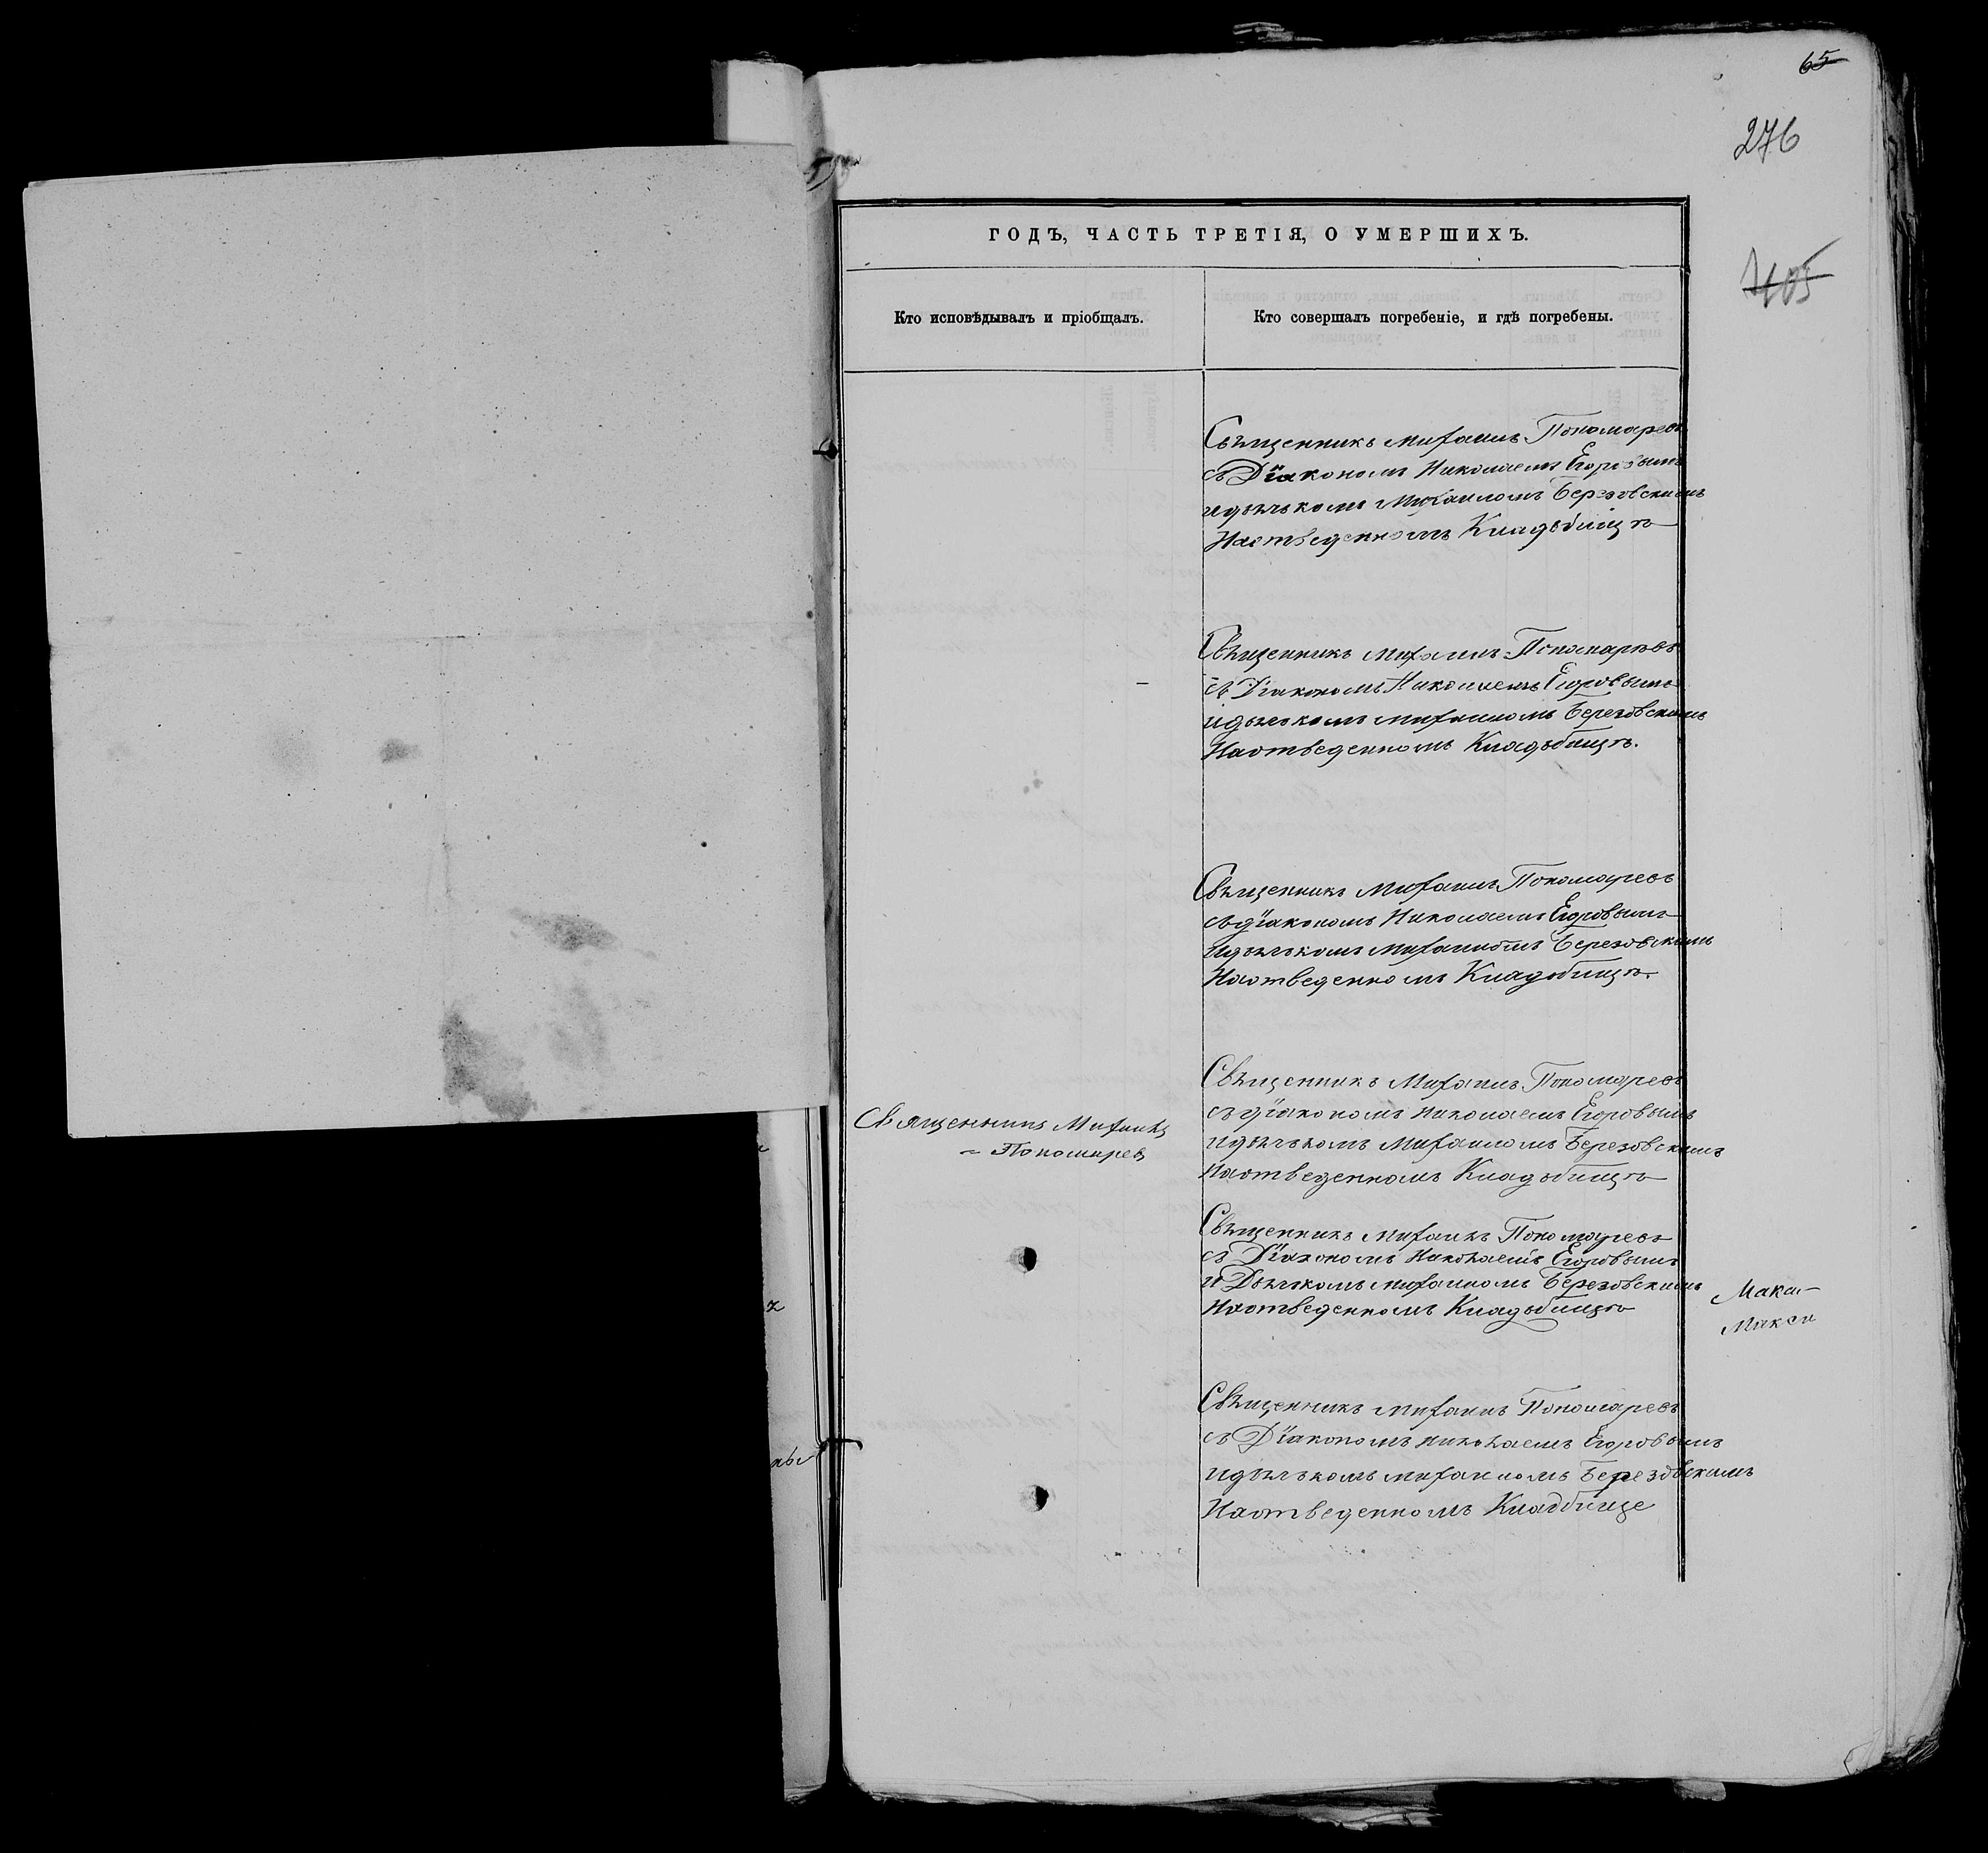 65
276
405
ГОДЪ, ЧАСТЬ ТРЕТІЯ, О УМЕРШИХЪ.
Кто исповѣдывалъ и пріобщалъ.
Кто совершалъ погребеніе, и гдѣ погребены.
Свѣщенникъ Михаилъ Пономаревъ
съ Діакономъ Николаемъ Егоровымъ
идьячкомъ Михаиломъ Березовскимъ
Наотведенномъ Кладьбищѣ
Свѣщенникъ Михаилъ Пономарѣвъ
съ Діакономъ Николаемъ Егоровымъ
идьячкомъ Михаиломъ Березовскимъ
Наотведенномъ Кладьбищѣ.
Свѣщенникъ Михаилъ Пономаревъ
съ діакономъ Николаемъ Егоровымъ
идьячкомъ Михаиломъ Березовскимъ
Наотведенномъ Кладьбищѣ.
Священникъ Михаилъ
Пономарев
Свѣщенникъ Михаилъ Пономаревъ
съ діакономъ Николаемъ Егоровымъ
идьячкомъ Михаиломъ Березовскимъ
Наотведенномъ Кладьбищѣ
Свѣщенникъ Михаилъ Пономаревъ
съ Діакономъ Николаемъ Егоровымъ
и Дьячкомъ Михаиломъ Березовскимъ
Наотведенномъ Кладьбищѣ
Мака-
Макси
Свѣщенникъ Михаилъ Пономаревъ
съ Діакономъ Николаемъ Егоровымъ
идьячкомъ Михаиломъ Березовскимъ
Наотведенномъ Кладбище